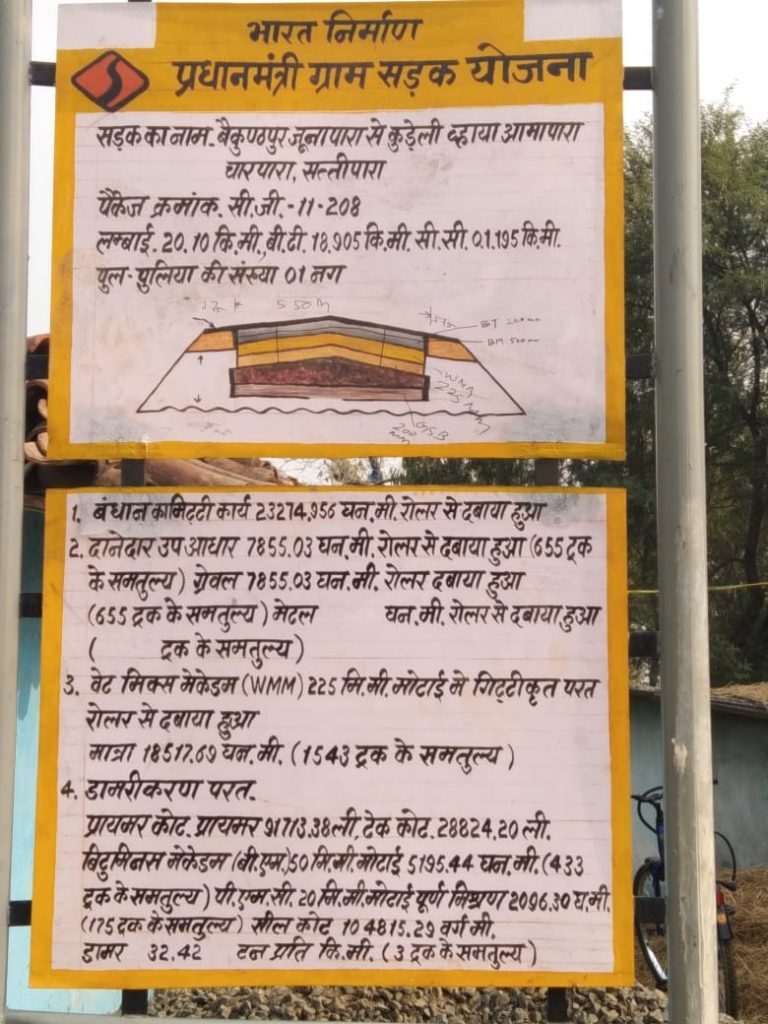 भारत निर्माण
प्रधानमंत्री ग्राम सड़क योजना
सड़क का नाम. बैकुण्ठपुर जूनापारा से कुड़ेली व्हाया आमापारा
धारपारा, सत्तीपारा
पैकेज क्रमांक. सी.जी.-11-208
लम्बाई. 20.10 कि.मी., बी.टी. 18.905 कि.मी. सी.सी. 01.195 कि.मी.
पुल-पुलिया की संख्या 01 नग
5.50 M
BT 20 mm
BM 50 mm
WMM
225 MM
GSB
200 mm
1. बंधान का मिट्टी कार्य 23274,956 घन.मी. रोलर से दबाया हुआ
2. दानेदार उप आधार 7855.03 घन.मी. रोलर से दबाया हुआ (655 ट्रक
के समतुल्य) ग्रेवल 7855.03 घन.मी. रोलर दबाया हुआ
(655 ट्रक के समतुल्य) मेटल घन.मी. रोलर से दबाया हुआ
( ट्रक के समतुल्य)
3. वेट मिक्स मेकेडम (WMM) 225 मि.मी. मोटाई मे गिट्टीकृत परत
रोलर से दबाया हुआ
मात्रा 18517.69 घन.मी. (1543 ट्रक के समतुल्य)
4. डामरीकरण परत.
प्रायमर कोट. प्रायमर 91713.38 ली. टेक कोट. 28824.20 ली.
बिटुमिनस मेकेडम (बी.एम.) 50 मि.मी. मोटाई 5195.44 घन.मी. (433
ट्रक के समतुल्य) पी.एम.सी. 20 मि.मी. मोटाई पूर्ण मिश्रण 2096.30 घ.मी.
(175 ट्रक के समतुल्य) सील कोट 104815.29 वर्ग मी.
डामर 32.42 टन प्रति कि.मी. (3 ट्रक के समतुल्य)